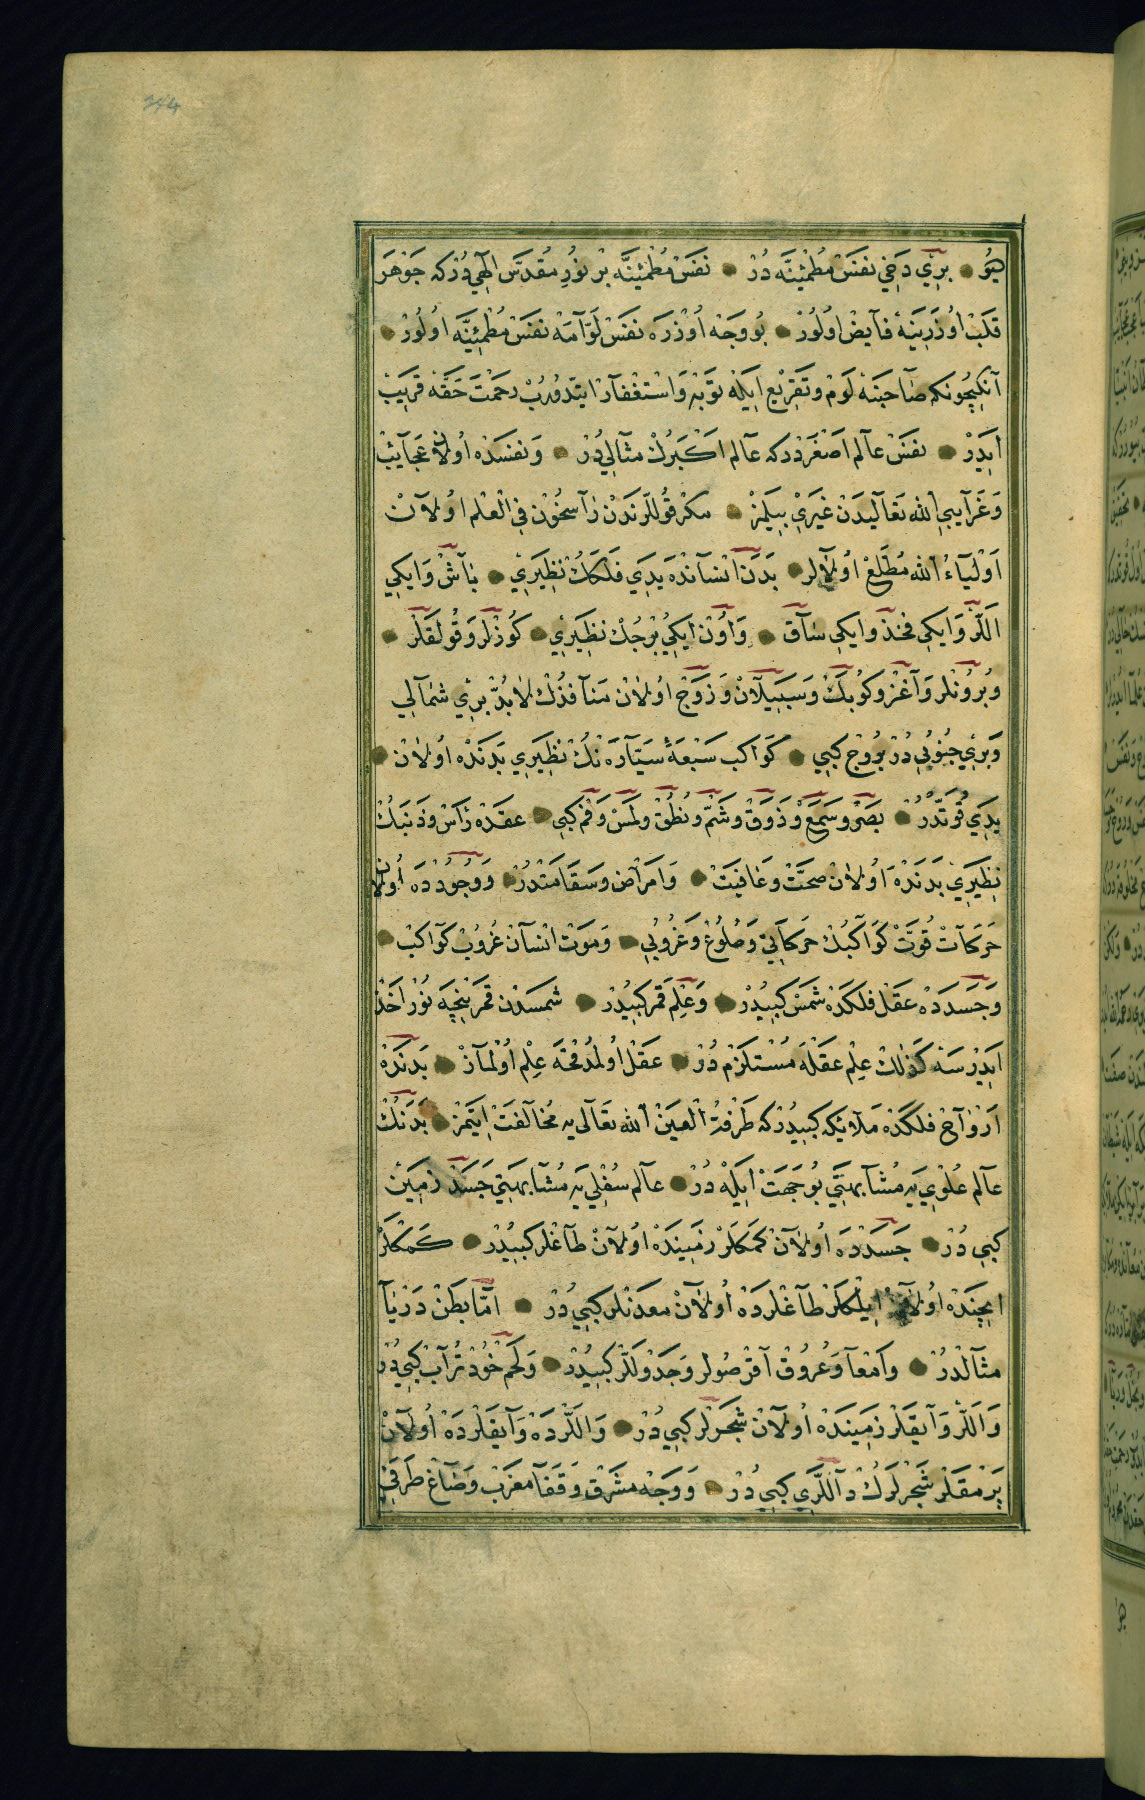 244
هيو بری دخی نفس مطمئنه در نفس مطمئنه بر نور مقدس الهی در که جوهر
قلب اوزرینه فآیض اولور بو وجه اوزره نفس لوآمه نفس مطمئنه اولور
آنکیچونکه صاحبنه لوم و تقریع ایله توبه و استغفآر ایتدورب رحمت حقه قریب
ایدر نفس عآلم اصغر در که عآلم اکبرك مثآلی در و نفسده اولان عجآیب
و غرآیبی الله تعآلیدن غیری بیلمز مکر قوللرندن رآسخون فی العلم اولآن
اولیآء الله مطلع اولآلر بدن انسآنده یدی فلکك نظیری بآش و ایکی
اللر و ایکی فخذ و ایکی سآق و اون ایکی برجك نظیری کوزلر و قولقلر
و برونلر و آغز و کوبك و سبیلآن و زوج اولان منآفذك لابد بری شمآلی
و بری جنوبی در بروج کبی کوآکب سبعه سیآره نك نظیری بدنده اولان
یدی قوتدر بصر و سمع و ذوق و شم و نطق و لمس و فم کبی عقده رأس و ذنبك
نظیری بدنده اولان صحت و عافیت و امراض و سقامتدر و وجودده اولان
حرکآت قوت کوآکبك حرکآتی و طلوع و غروبی و موت انسآن غروب کوآکب
و جسدده عقل فلکده شمس کبیدر و علم قمر کبیدر شمسدن قمر نیچه نور اخذ
ایدرسه کذلك علم عقله مستلزم در عقل اولمدقجه علم اولمآز بدنده
ارواح فلکده ملآئکه کبیدر که طرفة العین الله تعآلی یه مخآلفت ایتمز بدنك
عآلم علوی یه مشآبهتی بو جهت ایله در عآلم سفلی یه مشآبهتی جسد زمین
کبی در جسدده اولآن کمکلر زمینده اولآن طآغلر کبیدر کمکلر
ایچنده اولآن ایلکلر طآغلرده اولآن معدنلر کبی در امآ بطن دریآ
مثآلدر و امعآ و عروق آقر صولر و جدوللر کبیدر و لحم خود ترآب کبی در
و اللر و آیقلر زمینده اولآن شجرلر کبی در و اللرده و آیقلرده اولآن
پرمقلر شجرلرك دآللری کبی در و وجه مشرق و قفآ مغرب و صآغ طرفی